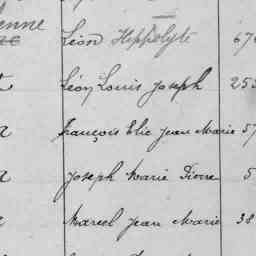 enne
Léon Hippolyte 670
Léon Louis Joseph 255
François Elie Jean Marie 57
Joseph Marie Pierre 5
Marcel Jean Marie 38